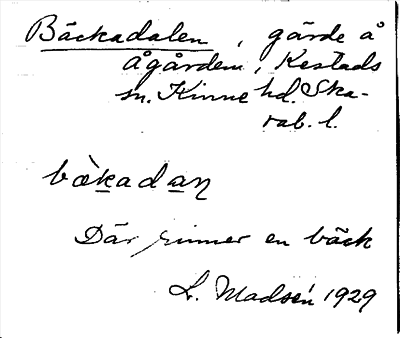 Bäckadalen, gärde å
Ågården, Kestads
sn. Kinne hd. Ska-
rab. l.
bæ̀kadan
Där rinner en bäck
L. Madsén 1929